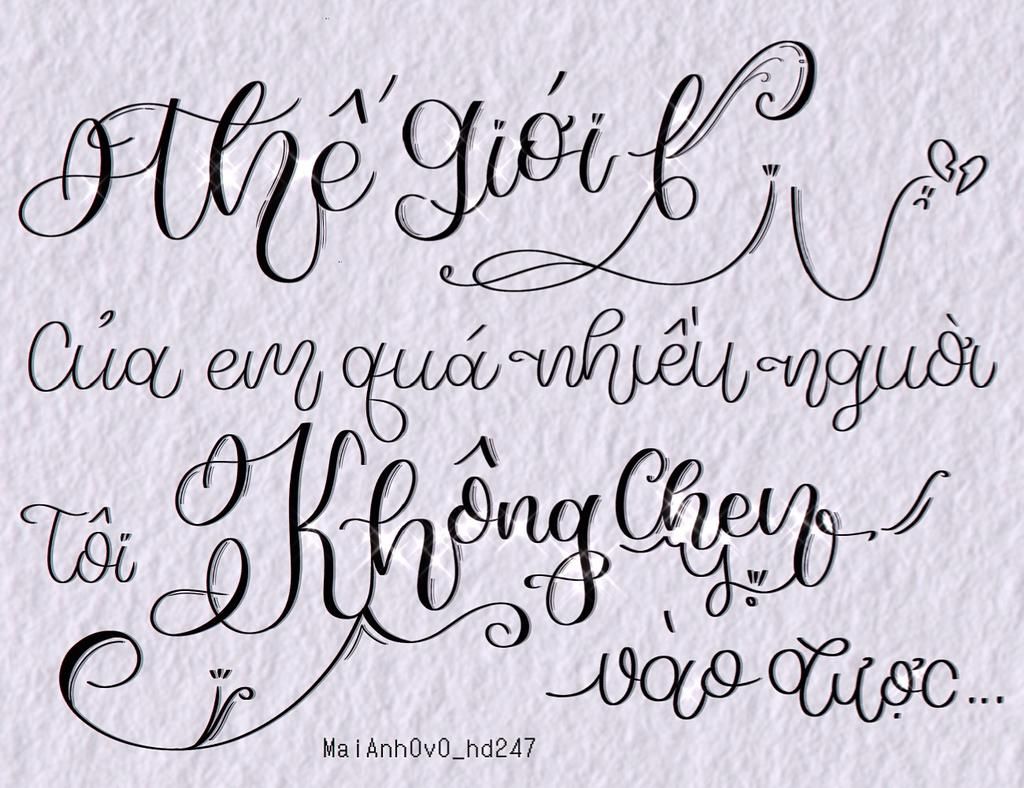 Thế giới
Của em quá nhiều người
Tôi Không Chen
vào được...
MaiAnhOvO_hd247